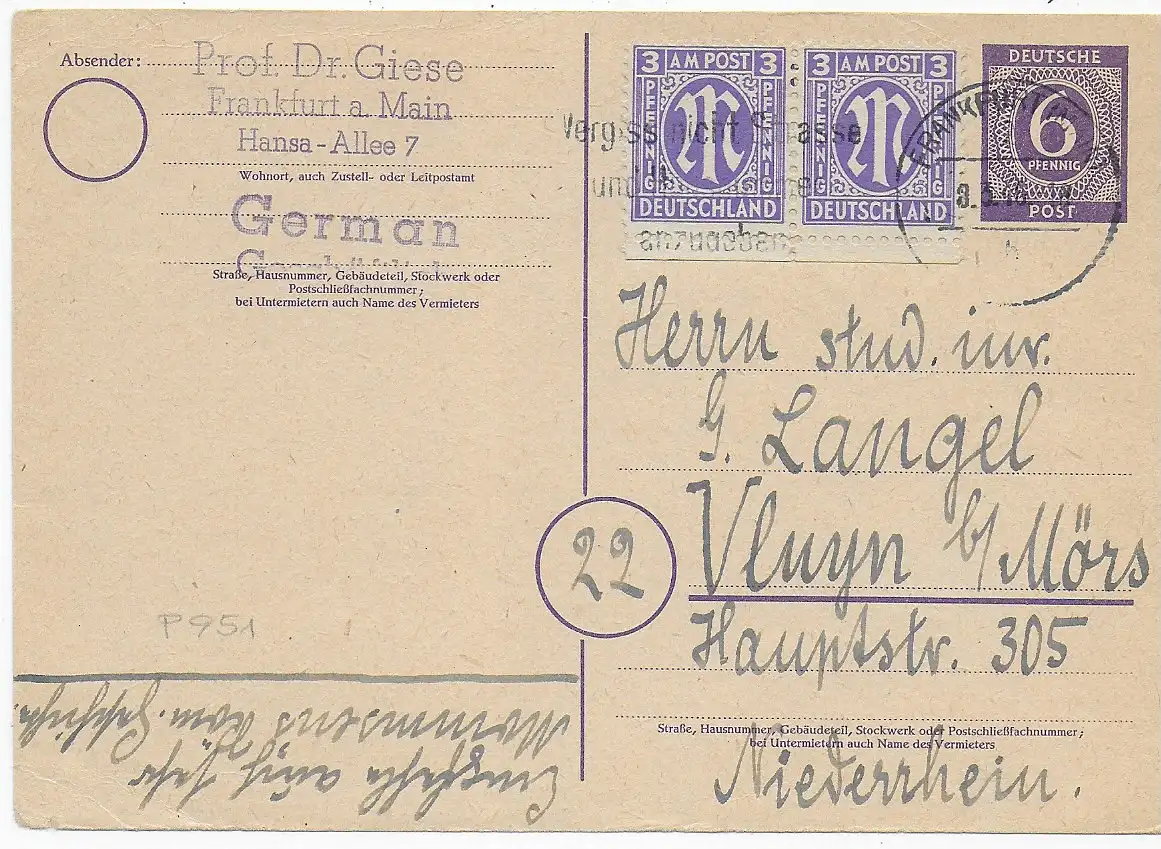 Absender:
Prof. Dr. Giese
Frankfurt a. Main
Hansa-Allee 7
Wohnort, auch Zustell- oder Leitpostamt
German
Straße, Hausnummer, Gebäudeteil, Stockwerk oder
Postschließfachnummer;
bei Untermietern auch Name des Vermieters
P951
3 AM POST 3
PFENNIG PFENNIG
M
DEUTSCHLAND
3 AM POST 3
PFENNIG PFENNIG
M
DEUTSCHLAND
DEUTSCHE
6
PFENNIG
POST
Vergiss nicht Strasse
und
anzugeben
FRANKFURT
Herrn stud. iur.
G. Langel
22
Vluyn b/Mörs
Hauptstr. 305
Straße, Hausnummer, Gebäudeteil, Stockwerk oder Postschließfachnummer;
bei Untermietern auch Name des Vermieters
Niederrhein.
Empfehle auch sehr
Mommsens Röm. Geschichte.